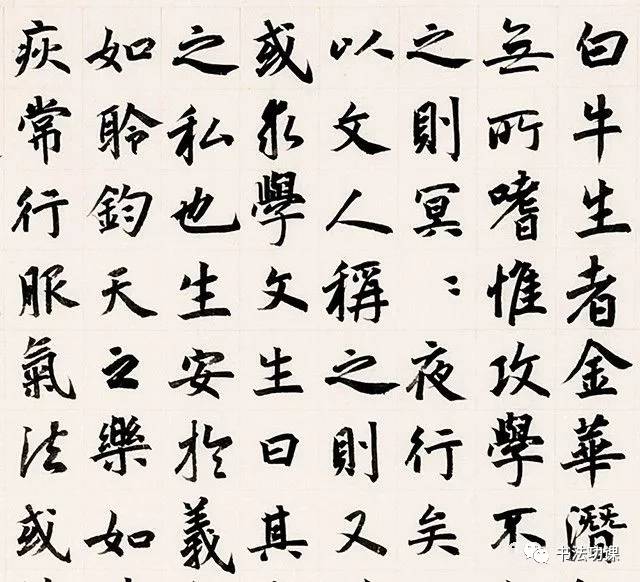 白牛生者金華潛
無所嗜惟攻學不
之則冥〻夜行矣
以文人稱之則又
或求學文生曰其
之私也生安於義
如聆鈞天之樂如
疾常行服氣法或
书法功课